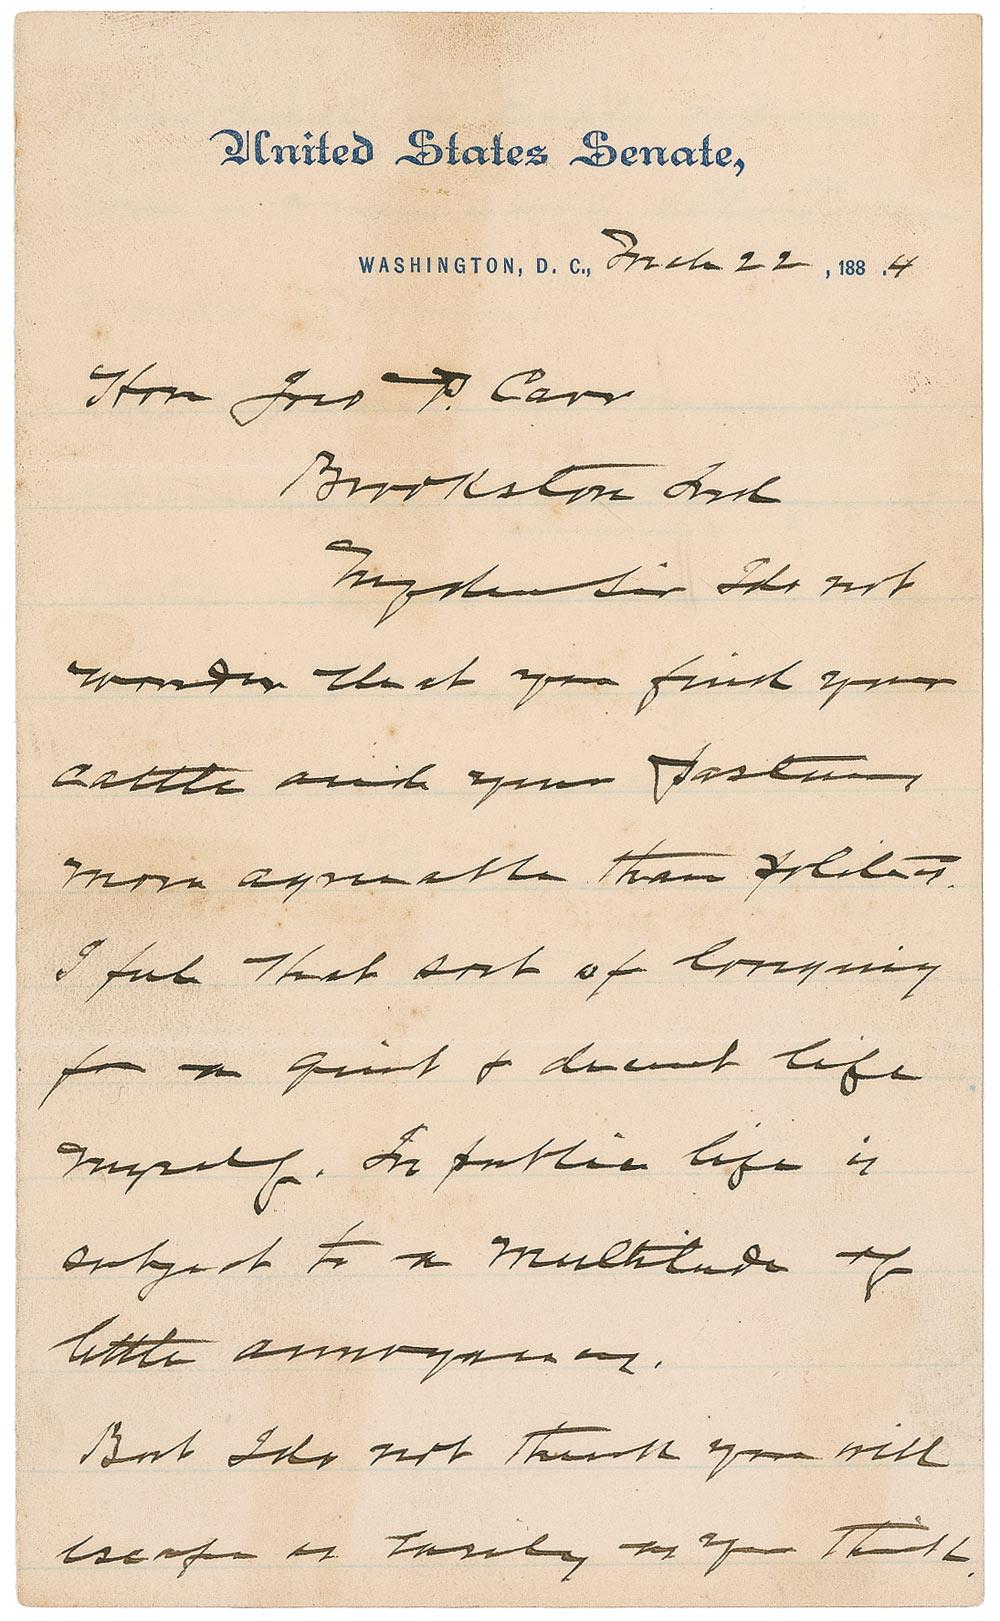 United States Senate,
WASHINGTON, D. C., Mch 22, 1884
Hon Jno P. Carr
Brookston Ind
My dear Sir I do not
wonder that you find your
cattle and your pastures,
more agreeable than politics.
I feel that sort of longing
for a quiet & decent life
myself. In public life is
subject to a multitude of
little annoyances.
But I do not think you will
escape as easily as you think.